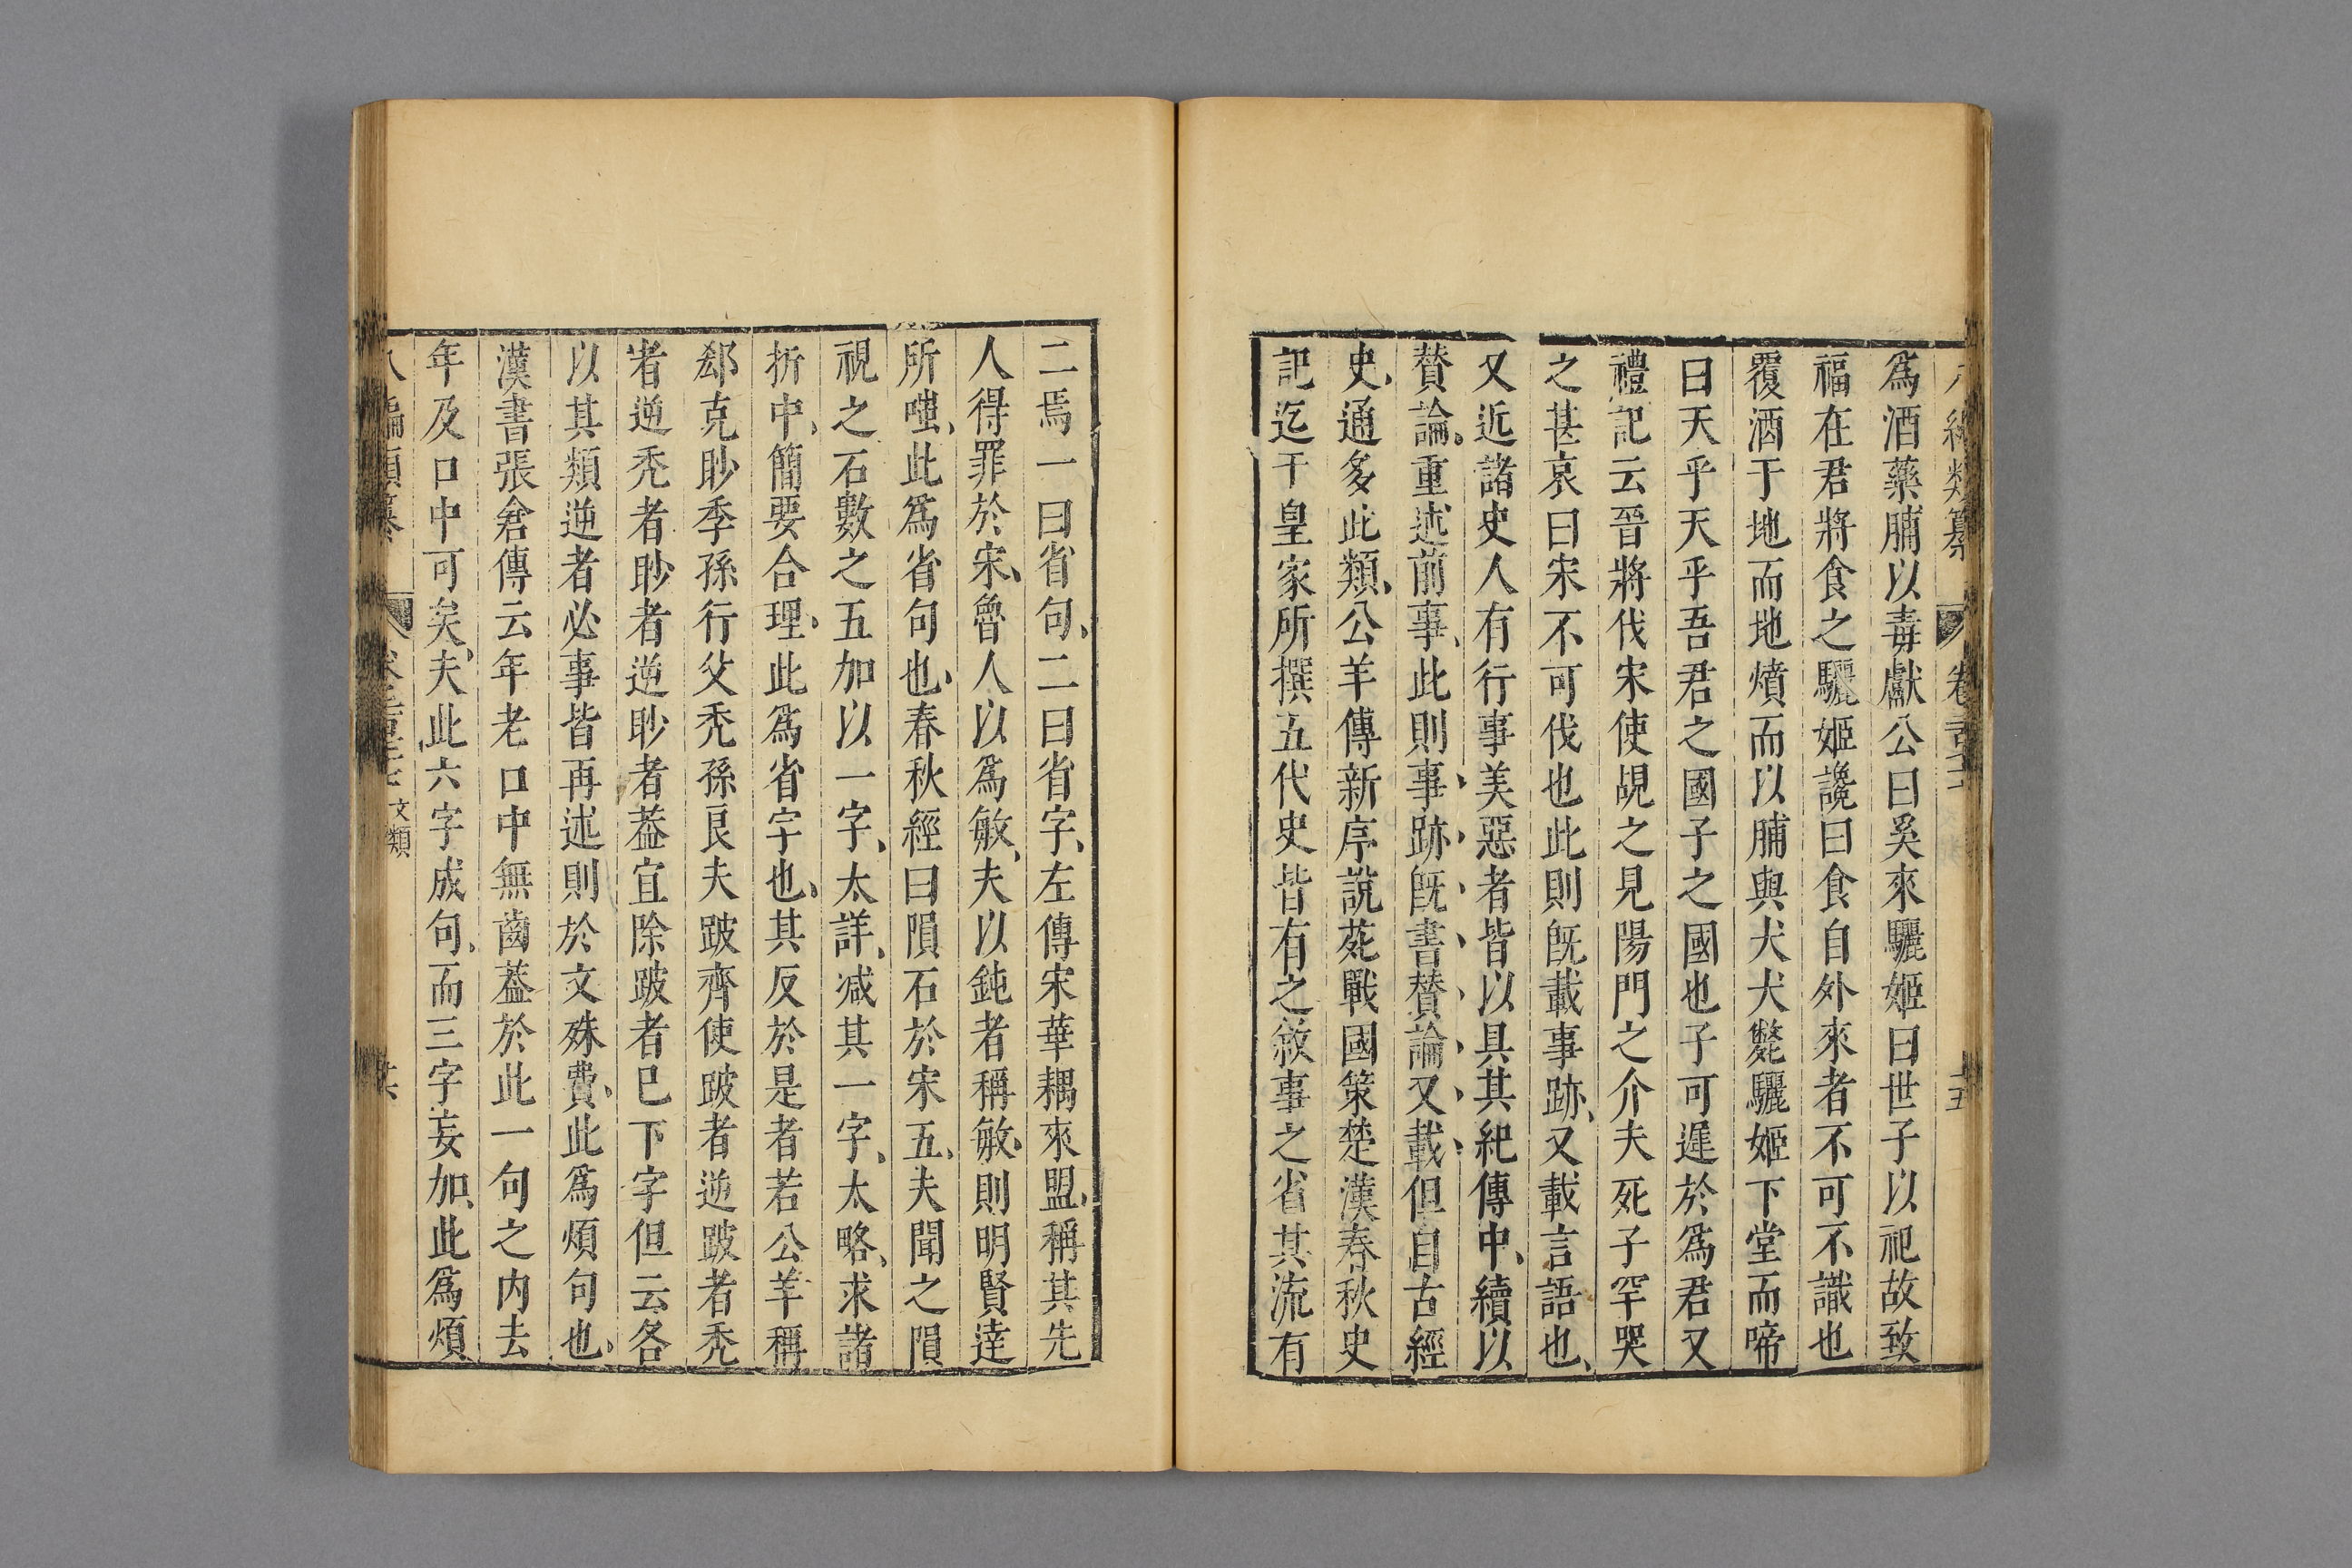 八編類纂 卷 十五
爲酒藥脯以毒獻公曰奚來驪姬曰世子以祀故致
福在君將食之驪姬諓曰食自外來者不可不識也
覆酒于地而地燌而以脯與犬犬斃驪姬下堂而啼
曰天乎天乎吾君之國子之國也子可遲於爲君又
禮記云晉將伐宋使覘之見陽門之介夫死子罕哭
之甚哀曰宋不可伐也此則旣載事跡又載言語也
又近諸史人有行事美惡者皆以具其紀傳中續以
贊論重述前事此則事跡旣書贊論又載但自古經
史通多此類公羊傳新序說苑戰國策楚漢春秋史
記迄于皇家所撰五代史皆有之敘事之省其流有
二焉一曰省句二曰省字左傳宋華耦來盟稱其先
人得罪於宋魯人以爲敏夫以鈍者稱敏則明賢達
所嗤此爲省句也春秋經曰隕石於宋五夫聞之隕
視之石數之五加以一字太詳减其一字太略求諸
折中簡要合理此爲省字也其反於是者若公羊稱
郄克眇季孫行父禿孫良夫跛齊使跛者逆跛者禿
者逆禿者眇者逆眇者葢宜除跛者已下字但云各
以其類逆者必事皆再述則於文殊費此爲煩句也
漢書張倉傳云年老口中無齒葢於此一句之內去
年及口中可矣夫此六字成句而三字妄加此爲煩
八編類纂 文類